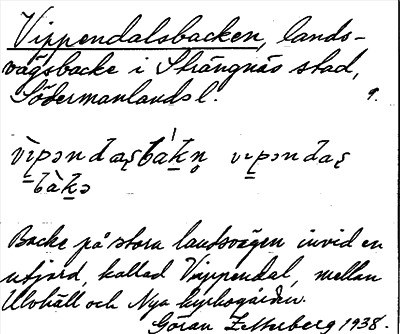 Vippendalsbacken, lands-
vägsbacke i Strängnäs stad,
Södermanlands l. 9.
Backe på stora landsvägen invid en
utjord, kallad Vippendal, mellan
Ulvhäll och Nya kyrkogården.
Göran Zetterberg 1938.